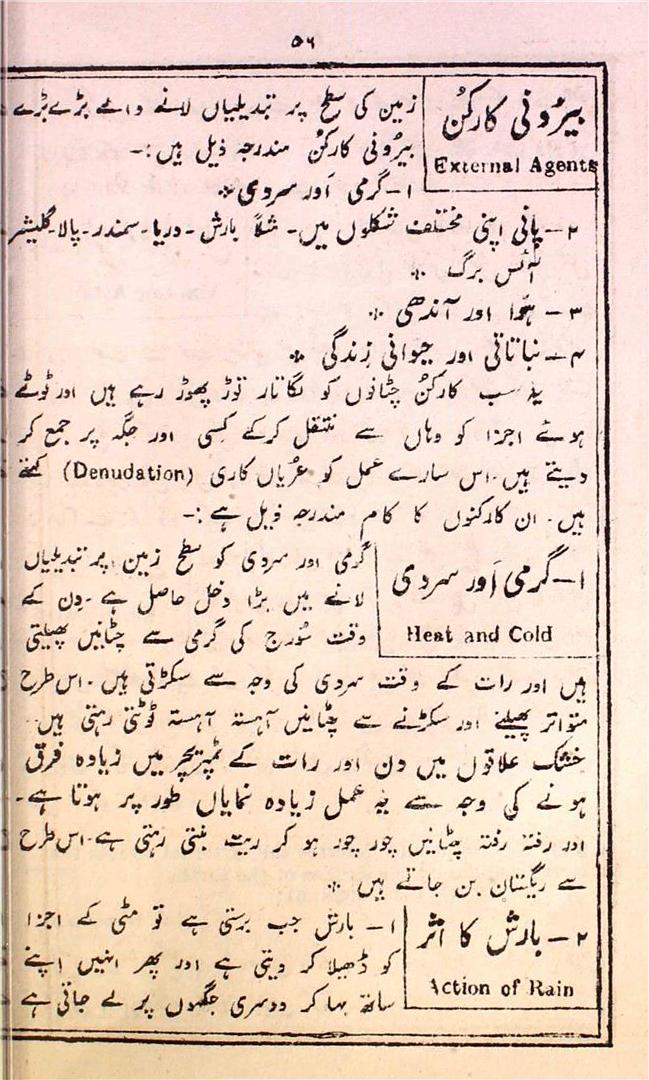 ۵۶
بیرُونی کارکُن
External Agents
زمین کی سطح پر تبدیلیاں لانے والے بڑے بڑے
بیرُونی کارکُن مندرجہ ذیل ہیں:-
۱- گرمی اَور سردی ۔
۲- پانی اپنی مختلف شکلوں میں۔ مثلاً بارش - دریا - سمندر - پالا - گلیشر
آئس برگ ۔
۳- ہَوا اور آندھی ۔
۴- نباتاتی اور حیوانی زِندگی ۔
یہ سب کارکُن چٹانوں کو لگاتار توڑ پھوڑ رہے ہیں اور ٹوٹے
ہوئے اجزا کو وہاں سے منتقل کرکے کِسی اور جگہ پر جمع کر
دیتے ہیں۔ اس سارے عمل کو عُریاں کاری (Denudation) کہتے
ہیں۔ ان کارکنوں کا کام مندرجہ ذیل ہے :-
۱- گرمی اَور سردی
Heat and Cold
گرمی اور سردی کو سطح زمین پر تبدیلیاں
لانے میں بڑا دخل حاصل ہے۔ دِن کے
وقت سُورج کی گرمی سے چٹانیں پھیلتی
ہیں اور رات کے وقت سردی کی وجہ سے سکڑتی ہیں۔ اس طرح
متواتر پھیلنے اور سکڑنے سے چٹانیں آہستہ آہستہ ٹوٹتی رہتی ہیں۔
خشک علاقوں میں دن اور رات کے ٹمپریچر میں زیادہ فرق
ہونے کی وجہ سے یہ عمل زیادہ نمایاں طور پر ہوتا ہے۔
اور رفتہ رفتہ چٹانیں چور چور ہو کر ریت بنتی رہتی ہے۔ اس طرح
سے ریگستان بن جاتے ہیں ۔
۲- بارش کا اثر
Action of Rain
۱- بارش جب برستی ہے تو مٹی کے اجزا
کو ڈھیلا کر دیتی ہے اور پھر انہیں اپنے
ساتھ بہا کر دوسری جگہوں پر لے جاتی ہے